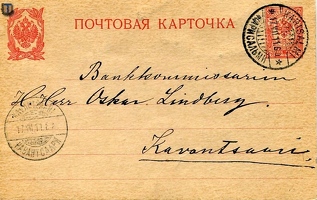 ПОЧТОВАЯ КАРТОЧКА
Bankkommissarien
H. Herr Oskar Lindberg.
Kavantsaari